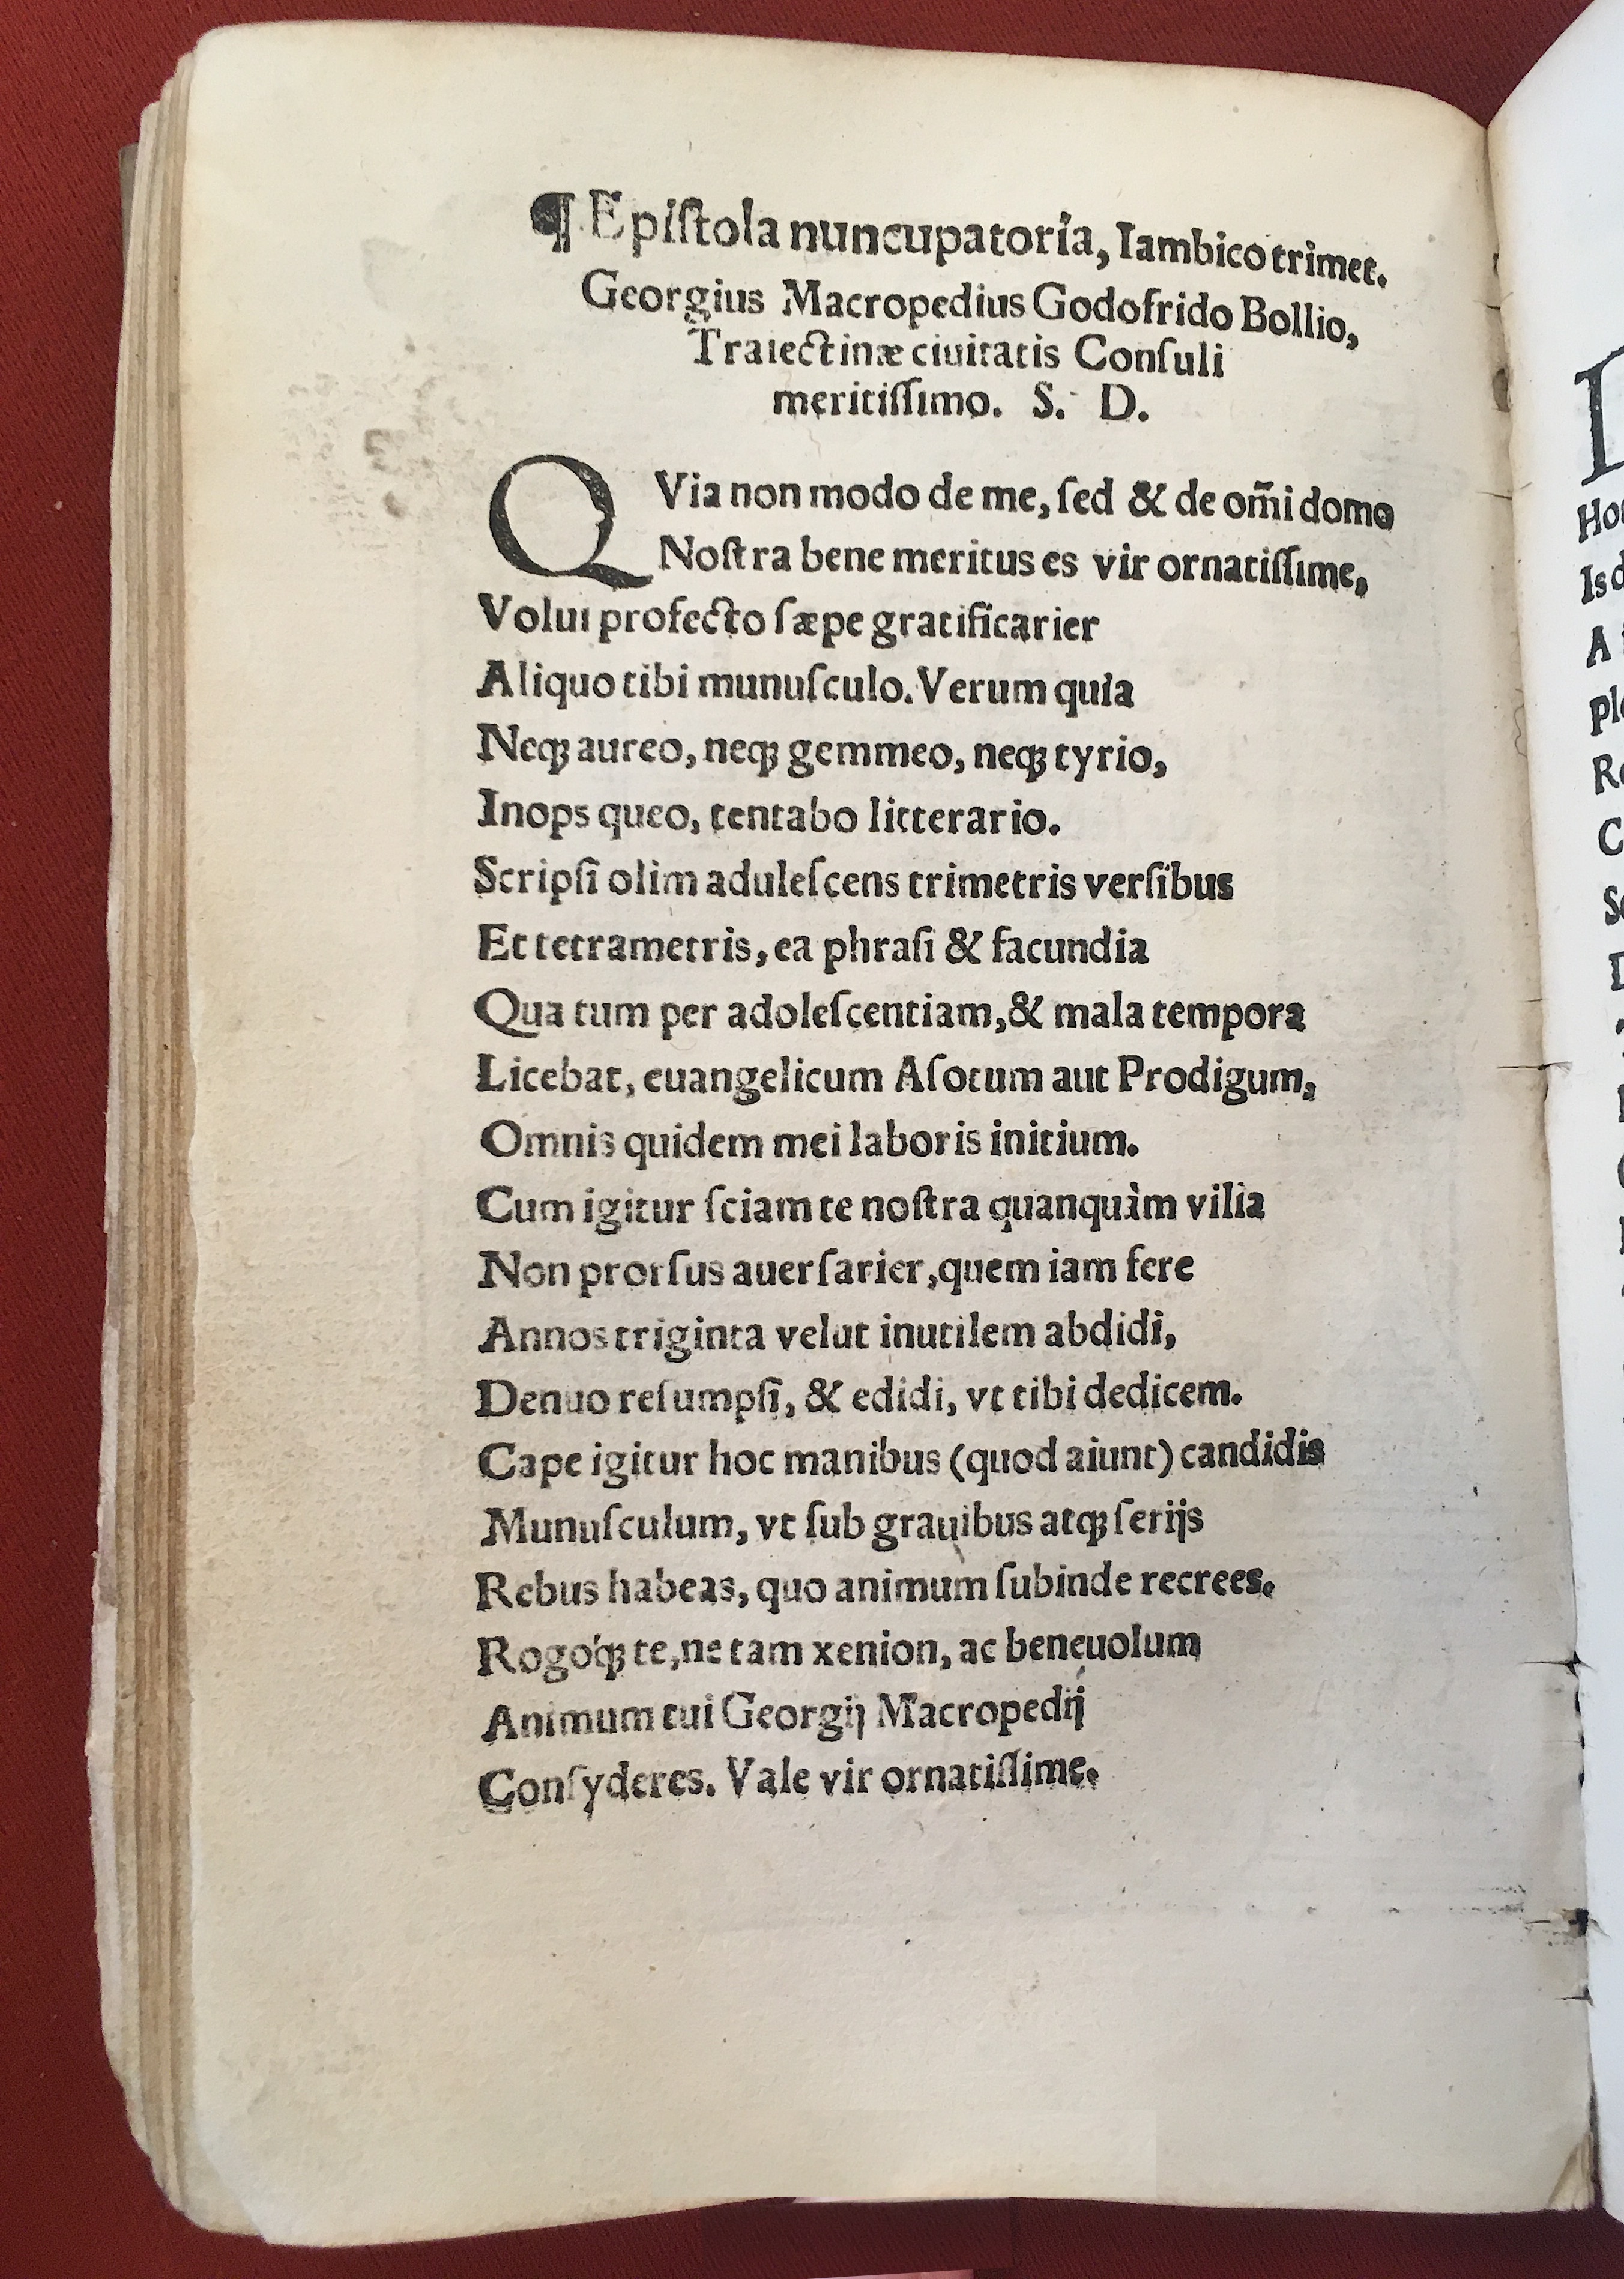 ¶ Epiſtola nuncupatoria, Iambico trimet.
Georgius Macropedius Godofrido Bollio,
Traiectinæ ciuitatis Conſuli
meritiſſimo. S. D.
QVia non modo de me, ſed & de om̃i domo
Noſtra bene meritus es vir ornatiſſime,
Volui profecto ſæpe gratificarier
Aliquo tibi munuſculo. Verum quia
Neqꝫ aureo, neqꝫ gemmeo, neqꝫ tyrio,
Inops queo, tentabo litterario.
Scripſi olim aduleſcens trimetris verſibus
Et tetrametris, ea phraſi & facundia
Qua tum per adoleſcentiam, & mala tempora
Licebat, euangelicum Aſotum aut Prodigum,
Omnis quidem mei laboris initium.
Cum igitur ſciam te noſtra quanquàm vilia
Non prorſus auerſarier, quem iam fere
Annos triginta velut inutilem abdidi,
Denuo reſumpſi, & edidi, vt tibi dedicem.
Cape igitur hoc manibus (quod aiunt) candidis
Munuſculum, vt ſub grauibus atqꝫ ſerijs
Rebus habeas, quo animum ſubinde recrees.
Rogóqꝫ te, ne tam xenion, ac beneuolum
Animum tui Georgij Macropedij
Conſyderes. Vale vir ornatiſſime.